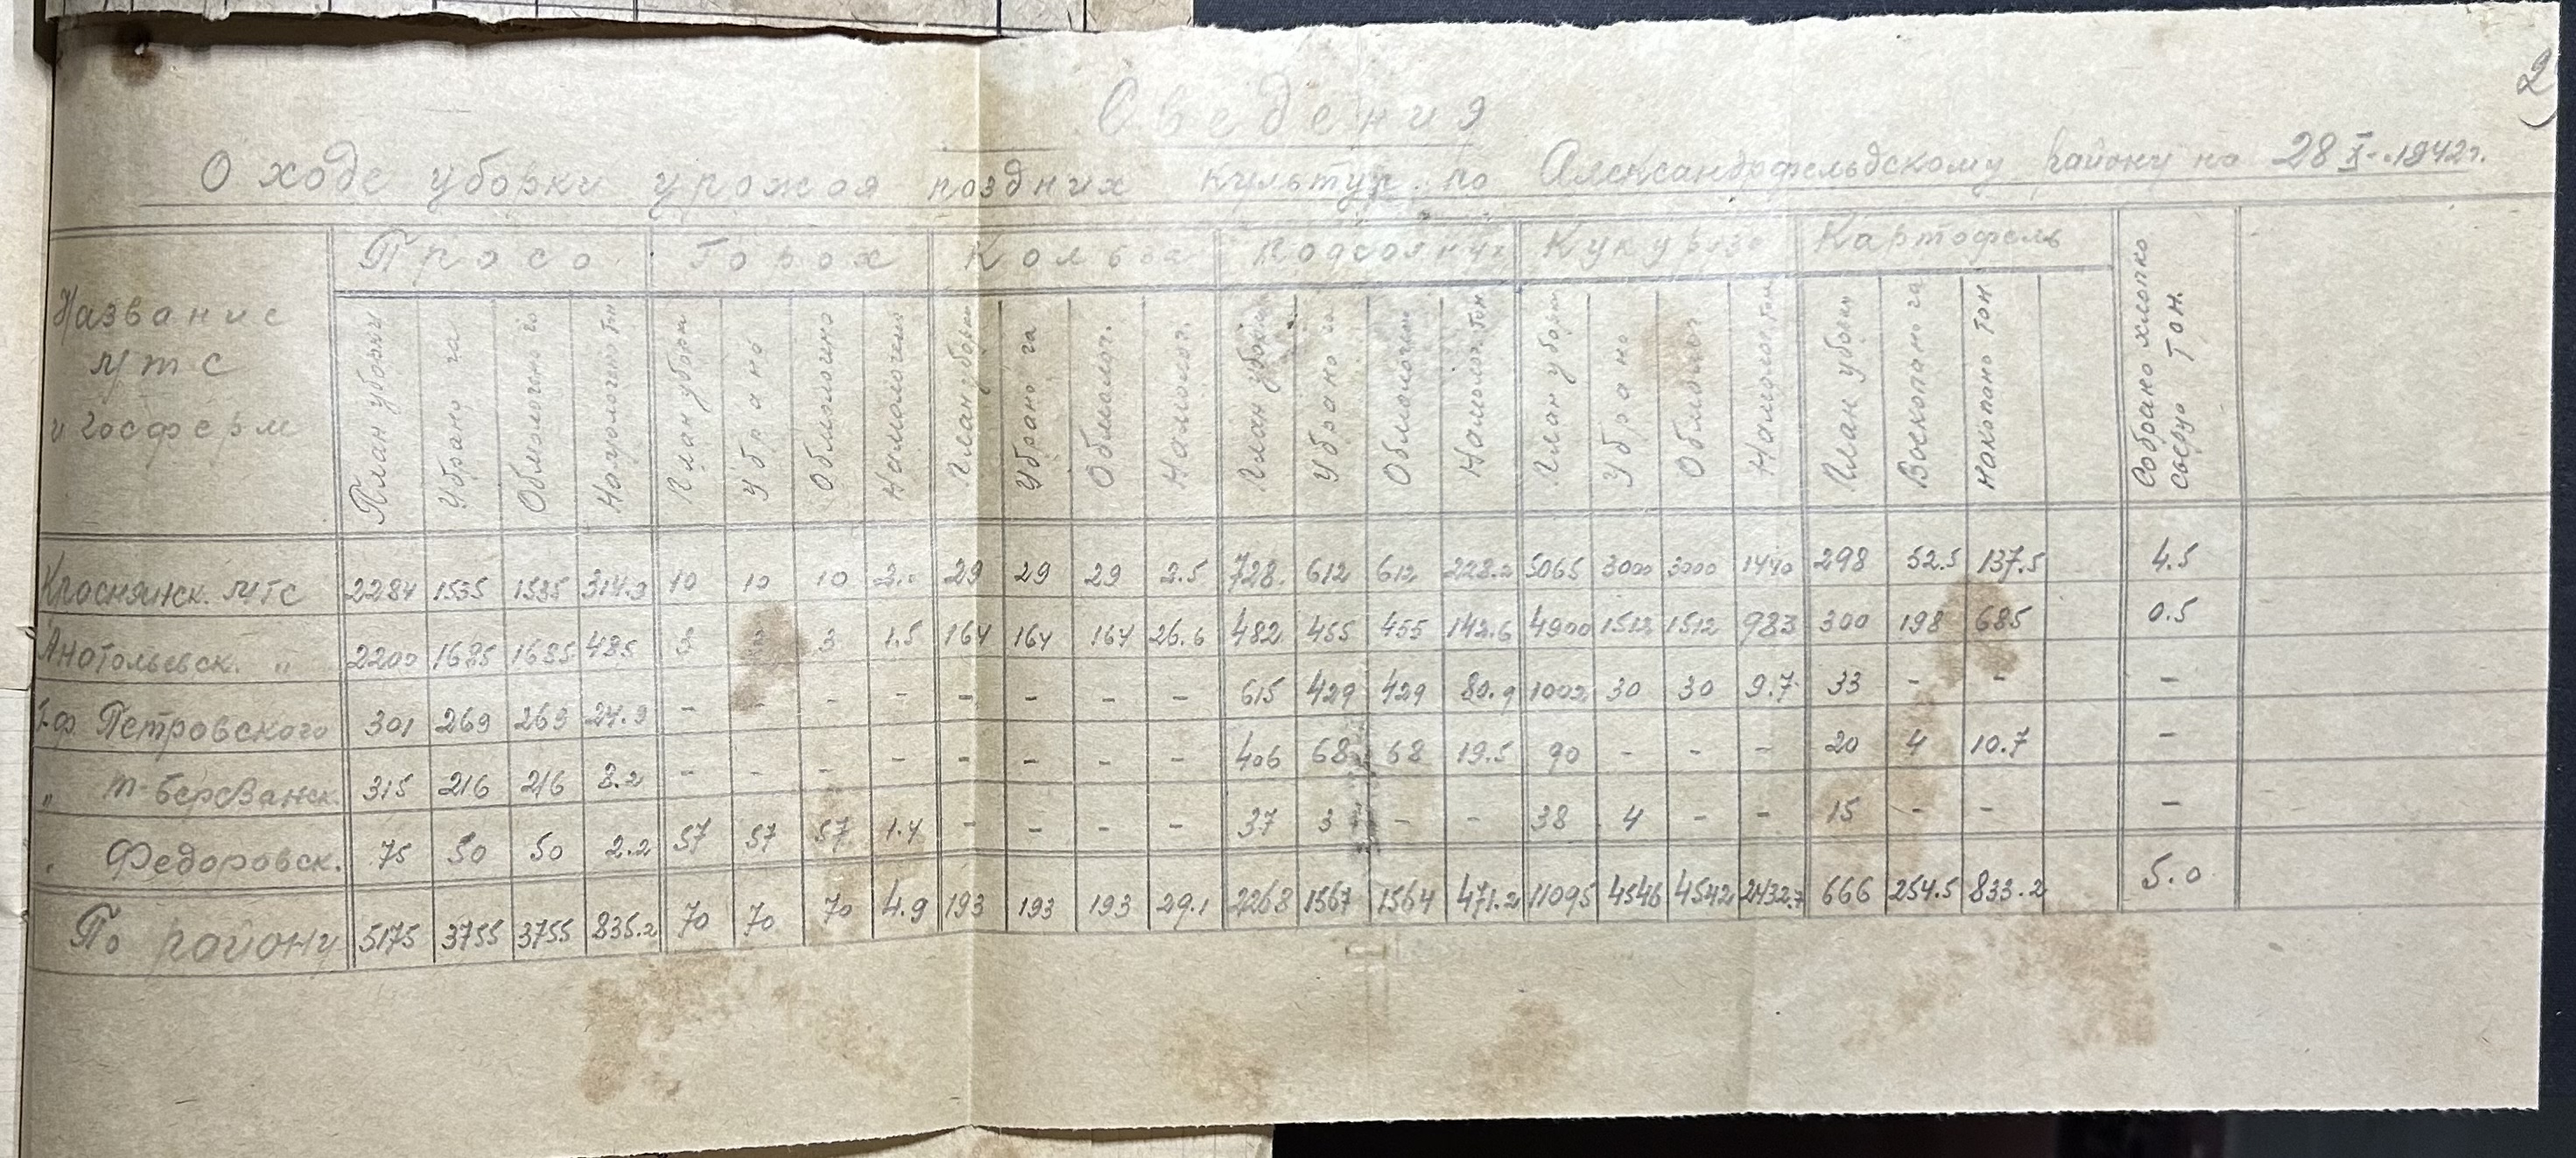 2
Сведения
О ходе уборки урожая поздних культур по Александрфельдскому району на 28 X-1942г.
Название МТС и госферм | Просо | Горох | Кользa | Подсолнух | Кукуруза | Картофель | Собрано хлопка сырцу Тон.
План уборки | Убрано га | Обмолочено га | Намолочено тн | План уборки | Убрано | Обмолочено | Намолочено | План уборки | Убрано га | Обмолоч. | Намолоч. | План уборки | Убрано га | Обмолочено | Намолоч. тн | План уборки | Убрано | Обмолоч | Намолот тон | План уборки | Воскопано га | Накопано тон
Краснянск. МТС | 2284 | 1535 | 1535 | 314.9 | 10 | 10 | 10 | 2.0 | 29 | 29 | 29 | 2.5 | 728. | 612 | 612 | 228.2 | 5065 | 3000 | 3000 | 1440 | 298 | 52.5 | 137.5 | 4.5
Анатольевск. " | 2200 | 1685 | 1685 | 485 | 3 | 3 | 3 | 1.5 | 164 | 164 | 164 | 26.6 | 482 | 455 | 455 | 142.6 | 4900 | 1512 | 1512 | 983 | 300 | 198 | 685 | 0.5
Г-ф. Петровского | 301 | 269 | 269 | 24.9 | - | - | - | - | - | - | - | - | 615 | 429 | 429 | 80.9 | 1002 | 30 | 30 | 9.7 | 33 | - | - | -
" Т-Березанск. | 315 | 216 | 216 | 8.2 | - | - | - | - | - | - | - | - | 406 | 68 | 68 | 19.5 | 90 | - | - | - | 20 | 4 | 10.7 | -
" Федоровск. | 75 | 50 | 50 | 2.2 | 57 | 57 | 57 | 1.4 | - | - | - | - | 37 | 3 | - | - | 38 | 4 | - | - | 15 | - | - | -
По району | 5175 | 3755 | 3755 | 835.2 | 70 | 70 | 70 | 4.9 | 193 | 193 | 193 | 29.1 | 2268 | 1567 | 1564 | 471.2 | 11095 | 4546 | 4542 | 2432.7 | 666 | 254.5 | 833.2 | 5.0